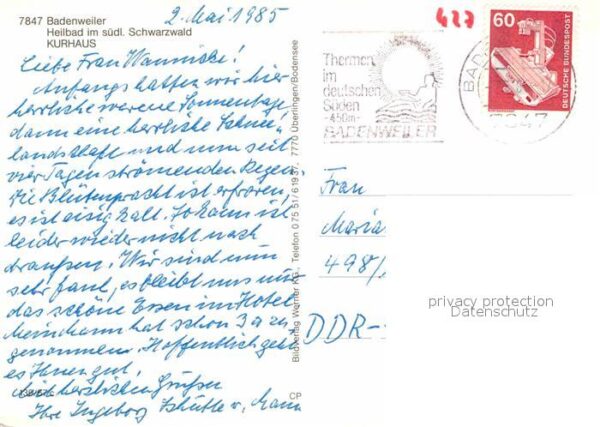 7847 Badenweiler
Heilbad im südl. Schwarzwald
KURHAUS
2. Mai 1985
Liebe Frau
Anfangs hatten wir hier
herrliche warme Sonnentage,
dann eine herrliche Schnee-
landschaft und nun seit
vier Tagen strömenden Regen.
Die Blütenpracht ist erfroren,
es ist eisig kalt. Johann ist
leider wieder nicht nach
draußen. Wir sind nun
sehr faul, es bleibt uns nur
das schöne Essen im Hotel
Mein Mann hat schon 3 a zu-
genommen. Hoffentlich geht
es Ihnen gut,
Mit herzlichen Grüßen
Ihre Ingeborg Schütte u. Mann
Bildverlag Werner Telefon 0 75 51/6 19 37, 7770 Überlingen/Bodensee
CP
427
Thermen
im
deutschen
Süden
-450m-
BADENWEILER
BAD
7847
60
DEUTSCHE BUNDESPOST
Frau
Maria
498/
DDR-
privacy protection
Datenschutz